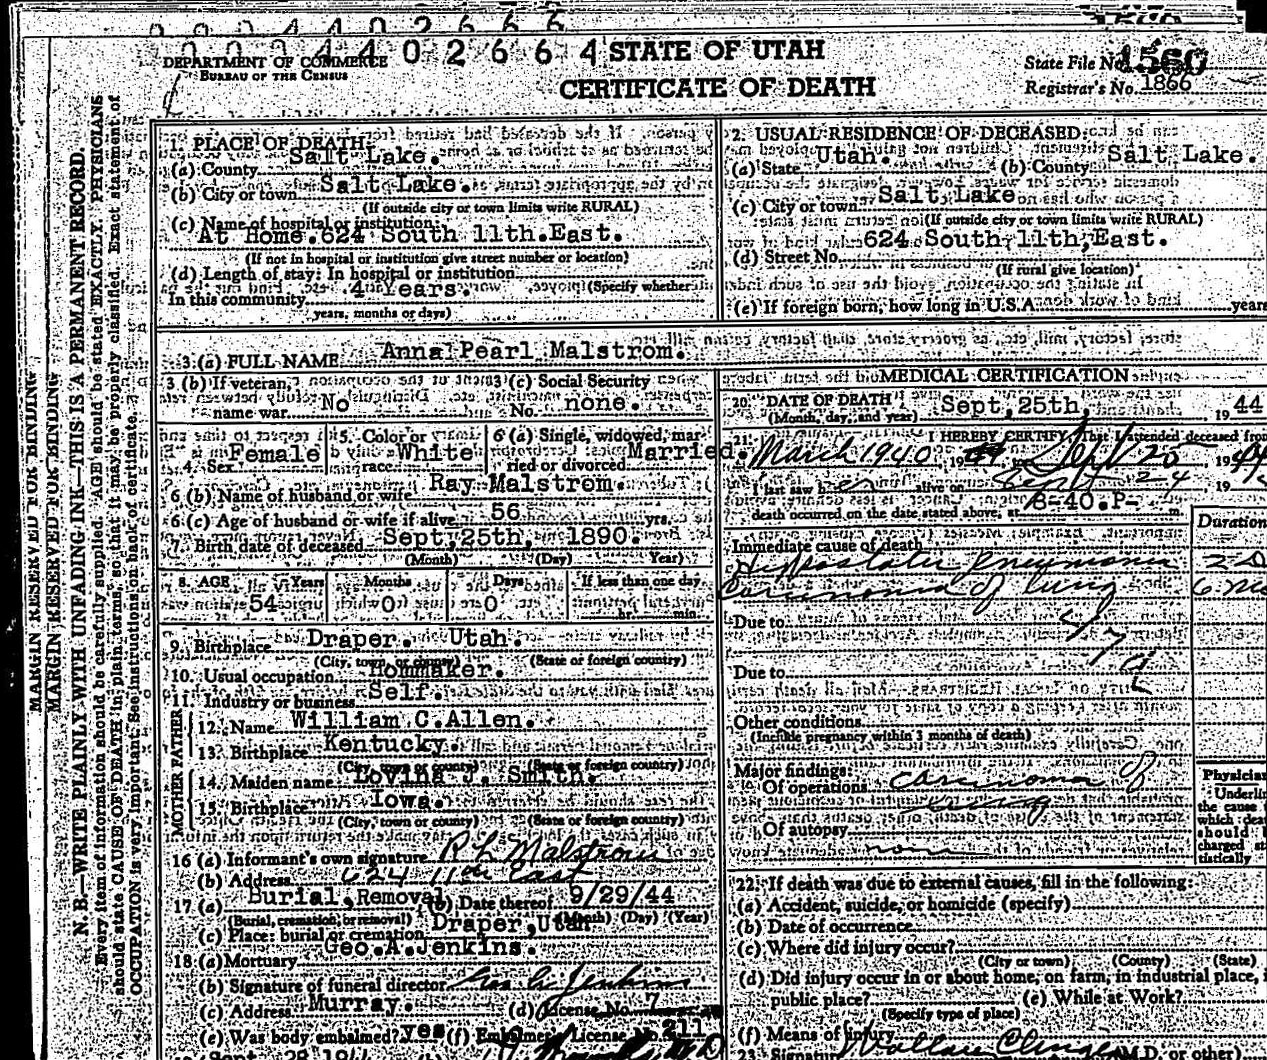 0 0 0 4 4 0 2 6 6 4
STATE OF UTAH
CERTIFICATE OF DEATH
DEPARTMENT OF COMMERCE
BUREAU OF THE CENSUS
State File No.
Registrar's No. 1866
MARGIN RESERVED FOR BINDING
MARGIN RESERVED FOR BINDING
N. B.—WRITE PLAINLY WITH UNFADING INK—THIS IS A PERMANENT RECORD.
Every item of information should be carefully supplied. AGE should be stated EXACTLY. PHYSICIANS
should state CAUSE OF DEATH in plain terms, so that it may be properly classified. Exact statement of
OCCUPATION is very important. See instructions on back of certificate.
1. PLACE OF DEATH:
(a) County Salt Lake.
(b) City or town Salt Lake.
(If outside city or town limits write RURAL)
(c) Name of hospital or institution:
At Home. 624 South 11th.East.
(If not in hospital or institution give street number or location)
(d) Length of stay: In hospital or institution
(Specify whether
In this community 4 Years.
years, months or days)
2. USUAL RESIDENCE OF DECEASED:
(a) State Utah. (b) County Salt Lake.
(c) City or town Salt Lake
(If outside city or town limits write RURAL)
(d) Street No. 624 South 11th,East.
(If rural give location)
(e) If foreign born, how long in U.S.A. years
3. (a) FULL NAME Anna Pearl Malstrom.
3 (b) If veteran, name war No
3 (c) Social Security No. none.
4. Sex Female
5. Color or race White
6 (a) Single, widowed, married or divorced Married.
6 (b) Name of husband or wife Ray Malstrom.
6 (c) Age of husband or wife if alive 56 yrs.
7. Birth date of deceased Sept, 25th, 1890.
(Month) (Day) Year)
8. AGE Years Months Days If less than one day
54 0 0 hr. min.
9. Birthplace Draper. Utah.
(City, town, or county) (State or foreign country)
10. Usual occupation Hommaker.
11. Industry or business Self.
FATHER
12. Name William C.Allen.
13. Birthplace Kentucky.
(City, town or county) (State or foreign country)
MOTHER
14. Maiden name Lovina J. Smith.
15. Birthplace Iowa.
(City, town or county) (State or foreign country)
16 (a) Informant's own signature R L Malstrom
(b) Address 624 11th East
17 (a) Burial, Removal (b) Date thereof 9/29/44
(Burial, cremation, or removal) (Month) (Day) (Year)
(c) Place: burial or cremation Draper,Utah
18. (a) Mortuary Geo.A.Jenkins.
(b) Signature of funeral director Geo. A. Jenkins
(c) Address Murray. (d) License No. 7
(e) Was body embalmed? yes (f) Embalmer License No. 211
MEDICAL CERTIFICATION
20. DATE OF DEATH Sept, 25th, 1944
(Month, day, and year)
21. I HEREBY CERTIFY, That I attended deceased from
March 1940, 19 to Sept 20 1944
I last saw her alive on Sept 24 19
death occurred on the date stated above, at 8-40.P- m.
Duration
Immediate cause of death
Hypostatic Pneumonia 2 D
Carcinoma of lung 6 mo
Due to
Due to
Other conditions
(Include pregnancy within 3 months of death)
Major findings:
Of operations carcinoma of
lung
Of autopsy
none
Physician
Underline
the cause
which death
should
charged sta-
tistically
22. If death was due to external causes, fill in the following:
(a) Accident, suicide, or homicide (specify)
(b) Date of occurrence
(c) Where did injury occur?
(City or town) (County) (State)
(d) Did injury occur in or about home, on farm, in industrial place, i
public place? (e) While at Work?
(Specify type of place)
(f) Means of injury
23. Signature (M.D. or other)